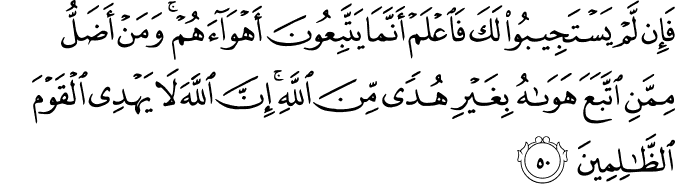 فَإِن لَّمْ يَسْتَجِيبُوا۟ لَكَ فَٱعْلَمْ أَنَّمَا يَتَّبِعُونَ أَهْوَآءَهُمْ ۚ وَمَنْ أَضَلُّ
مِمَّنِ ٱتَّبَعَ هَوَىٰهُ بِغَيْرِ هُدًى مِّنَ ٱللَّهِ ۚ إِنَّ ٱللَّهَ لَا يَهْدِى ٱلْقَوْمَ
ٱلظَّـٰلِمِينَ ٥٠